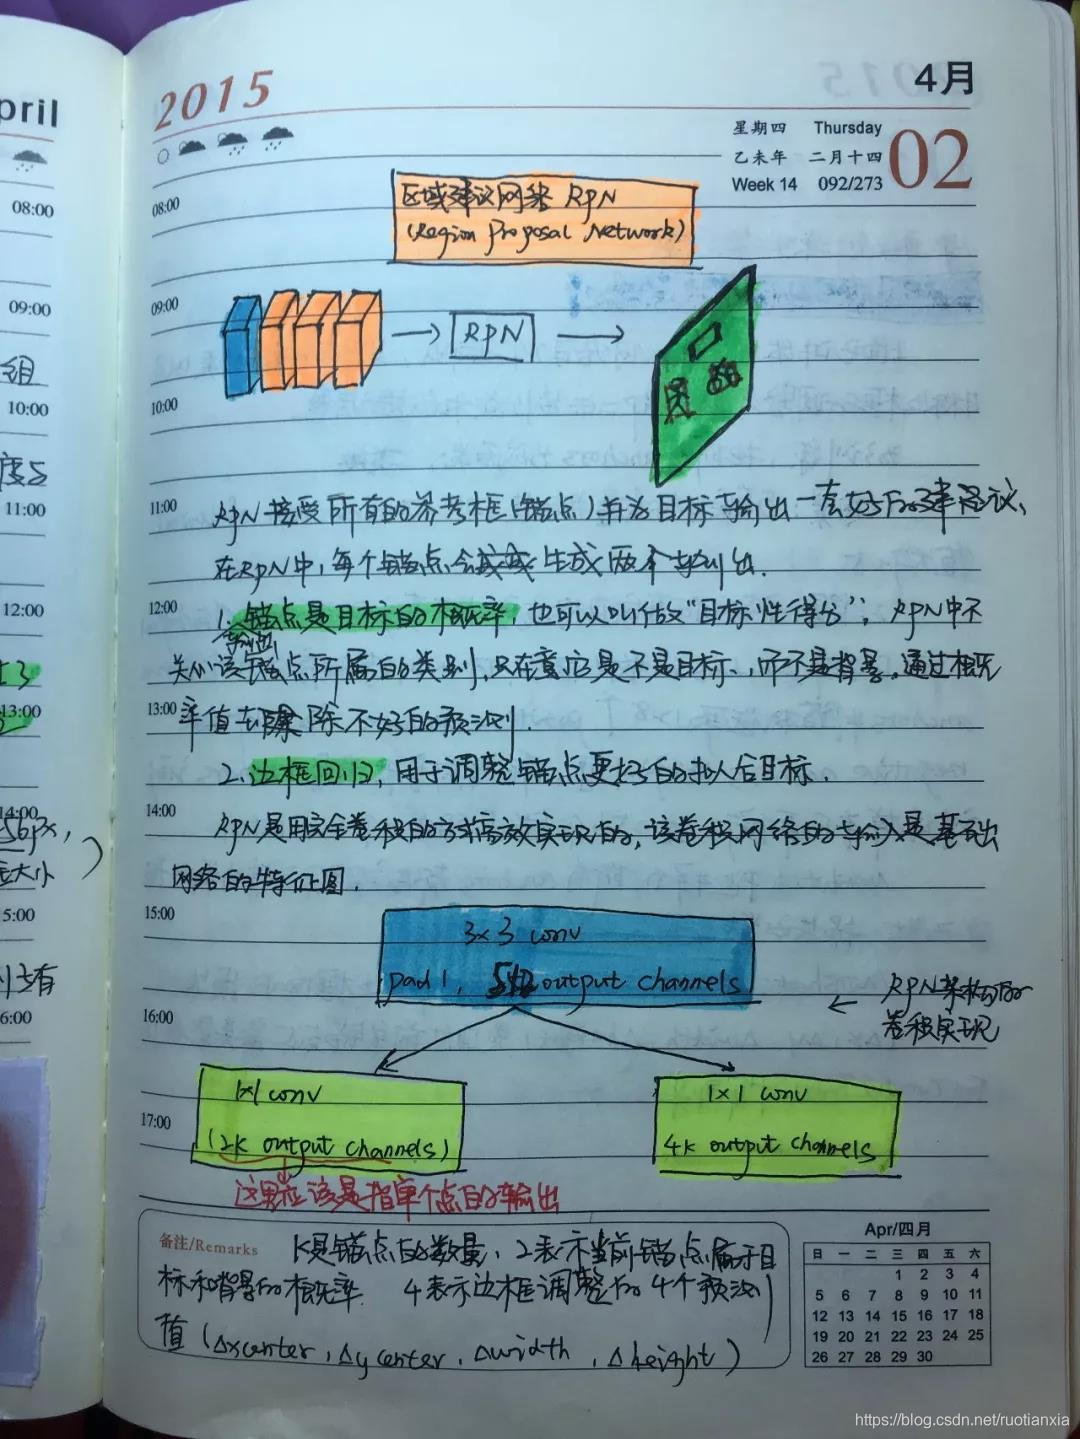 pril
2015
4月
星期四 Thursday
乙未年 二月十四
Week 14 092/273
02
08:00
08:00
区域建议网络 RPN
(Region Proposal Network)
09:00
09:00
RPN
组
10:00
10:00
度S
11:00
11:00
RPN接受所有的参考框(锚点)并为目标输出一套好的建议、
在RPN中,每个锚点会生成两个输出.
12:00
12:00
1.锚点是目标的概率,也可以叫做"目标性得分",RPN中不
输出
关心该锚点所属的类别,只在意它是不是目标,而不是背景。通过概
13:00
13:00
率值去除不好的预测.
2.边框回归,用于调整锚点更好的拟合目标.
14:00
14:00
56px,
RPN是用完全卷积的方式高效实现的,该卷积网络的输入是基础
大小
网络的特征图.
15:00
5:00
3×3 conv
pad 1, 512 output channels
RPN架构的
卷积实现
16:00
6:00
1×1 conv
(2k output channels)
1×1 conv
4k output channels
17:00
这里应该是指单个点的输出
备注/Remarks
K是锚点的数量,2表示当前锚点属于目
标和背景的概率. 4表示边框调整的4个预测
值(Δxcenter,Δycenter,Δwidth,Δheight)
Apr/四月
日 一 二 三 四 五 六
1 2 3 4
5 6 7 8 9 10 11
12 13 14 15 16 17 18
19 20 21 22 23 24 25
26 27 28 29 30
https://blog.csdn.net/ruotianxia